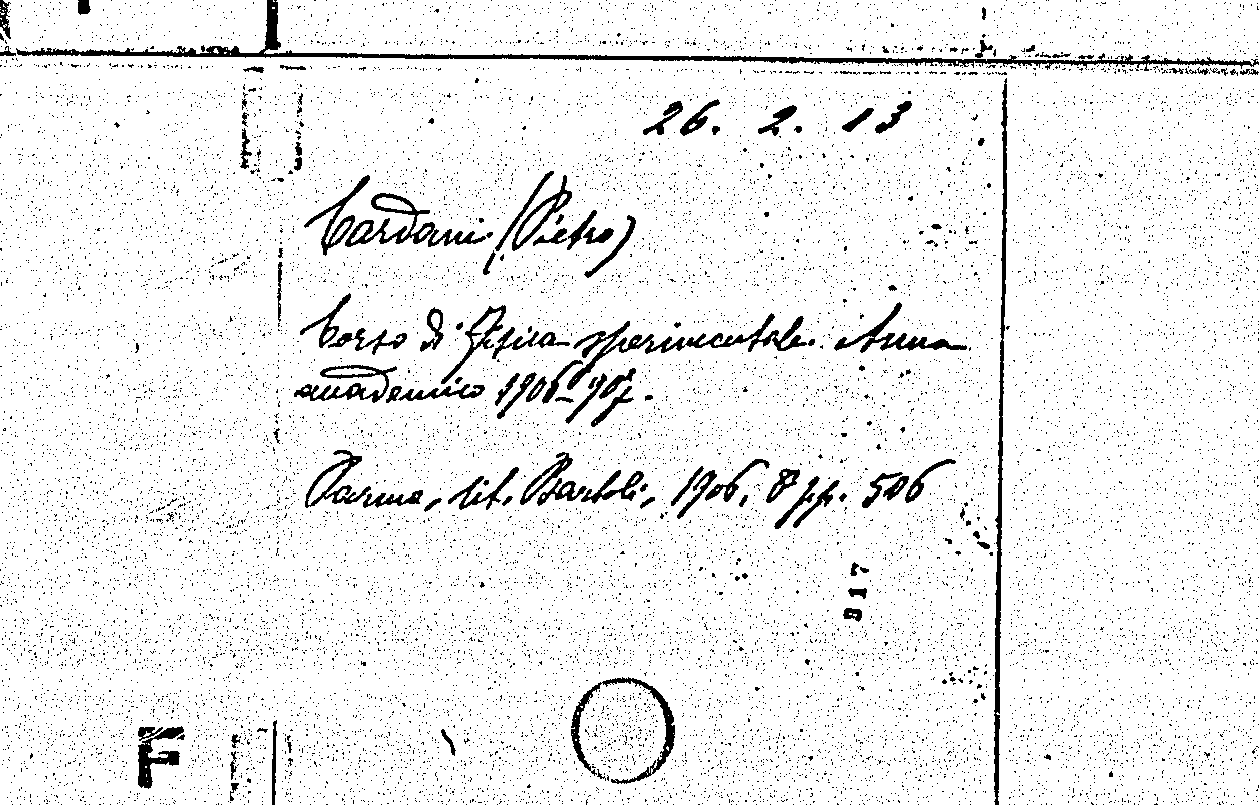 26. 2. 13
Cardani (Pietro)
Corso di Fisica sperimentale. Anno
accademico 1906-907.
Parma, lit. Bartoli, 1906, 8 pp. 506
917
F